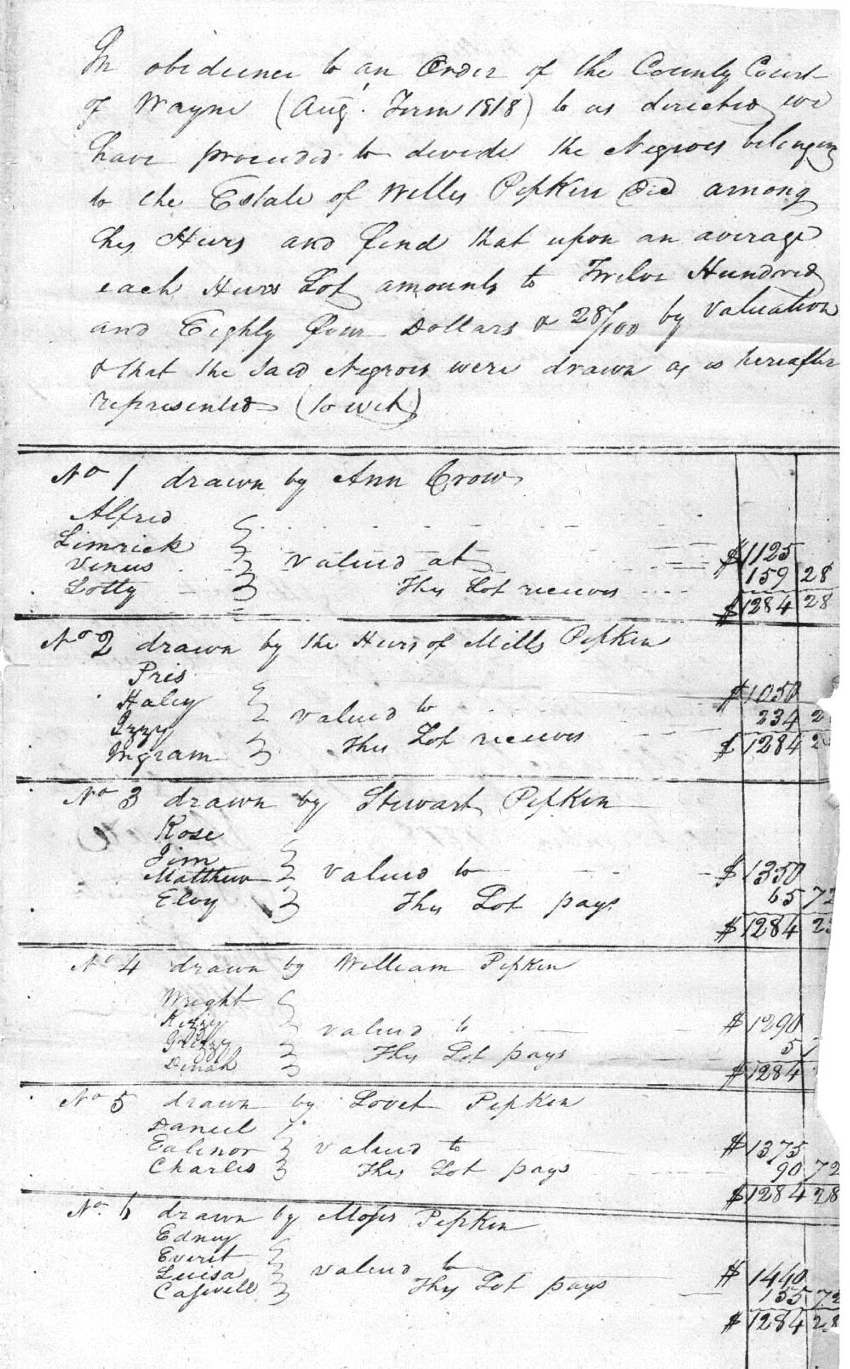 In obedience to an Order of the County Court
of Wayne (Aug. Term 1818) to us directed, we
have proceeded to devide the Negroes belonging
to the Estate of Willis Pipkin Dcd among
his Heirs and find that upon an average
each Heirs Lot amounts to Twelve Hundred
and Eighty four Dollars & 28/100 by valuation
& that the said Negroes were drawn as is hereafter
represented (to wit)
No 1 drawn by Ann Crow
Alfred
Limrick
Venus } valued at $1125
Lotty } This Lot receives 159 28
$1284 28
No 2 drawn by the Heirs of Mills Pipkin
Pris
Haley
Izzy } valued to $1050
Ingram } This Lot receives 234 2
$1284 2
No 3 drawn by Stewart Pipkin
Rose
Jim
Matthew } valued to $1350
Elvy } This Lot pays 65 72
$1284 2
No 4 drawn by William Pipkin
Wright
Kizzy } valued to $1290
This Lot pays 5
Dinah } $1284
No 5 drawn by Lovet Pipkin
Daniel
Ealinor } valued to $1375
Charles } This Lot pays 90 72
$1284 28
No 6 drawn by Moses Pipkin
Edney
Everit
Luisa } valued to $1440
Caswell } This Lot pays 155 72
$1284 28